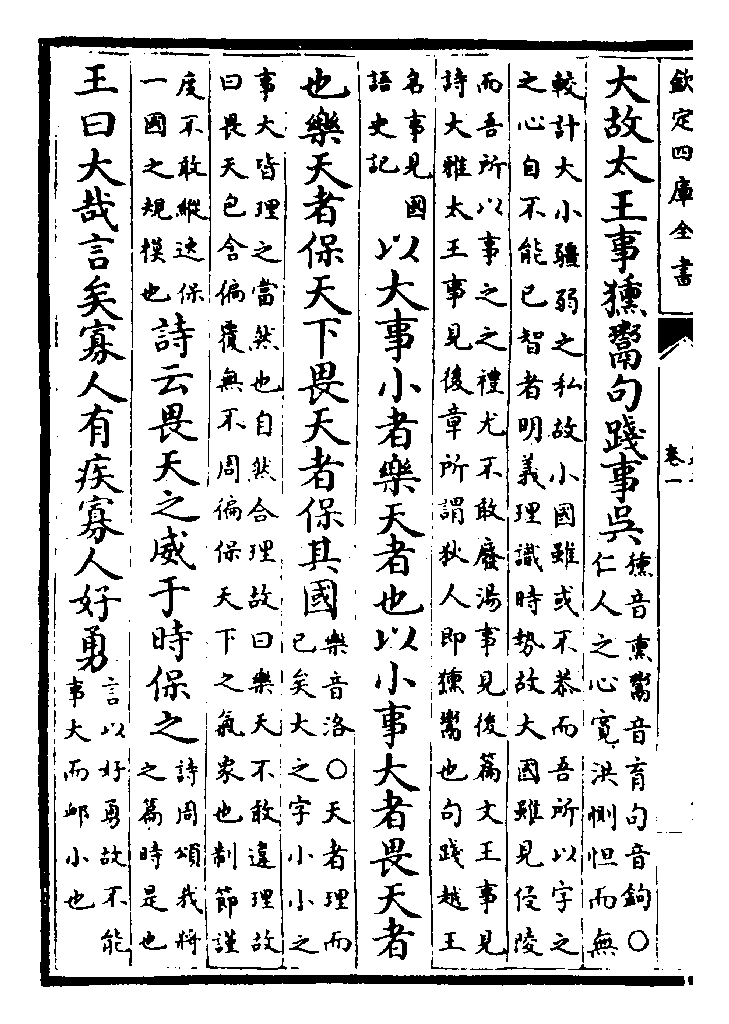 欽定四庫全書
卷一
大故太王事獯鬻句踐事吳
獯音熏鬻音育句音鉤○
仁人之心寛洪惻怛而無
較計大小彊弱之私故小國雖或不恭而吾所以字之
之心自不能已智者明義理識時勢故大國雖見侵陵
而吾所以事之之禮尤不敢廢湯事見後篇文王事見
詩大雅太王事見後章所謂狄人即獯鬻也句踐越王
名事見國
語史記
以大事小者樂天者也以小事大者畏天者
也樂天者保天下畏天者保其國
樂音洛○天者理而
已矣大之字小小之
事大皆理之當然也自然合理故曰樂天不敢違理故
曰畏天包含徧覆無不周徧保天下之氣象也制節謹
度不敢縱逸保
一國之規模也
詩云畏天之威于時保之
詩周頌我將
之篇時是也
王曰大哉言矣寡人有疾寡人好勇
言以好勇故不能
事大而卹小也